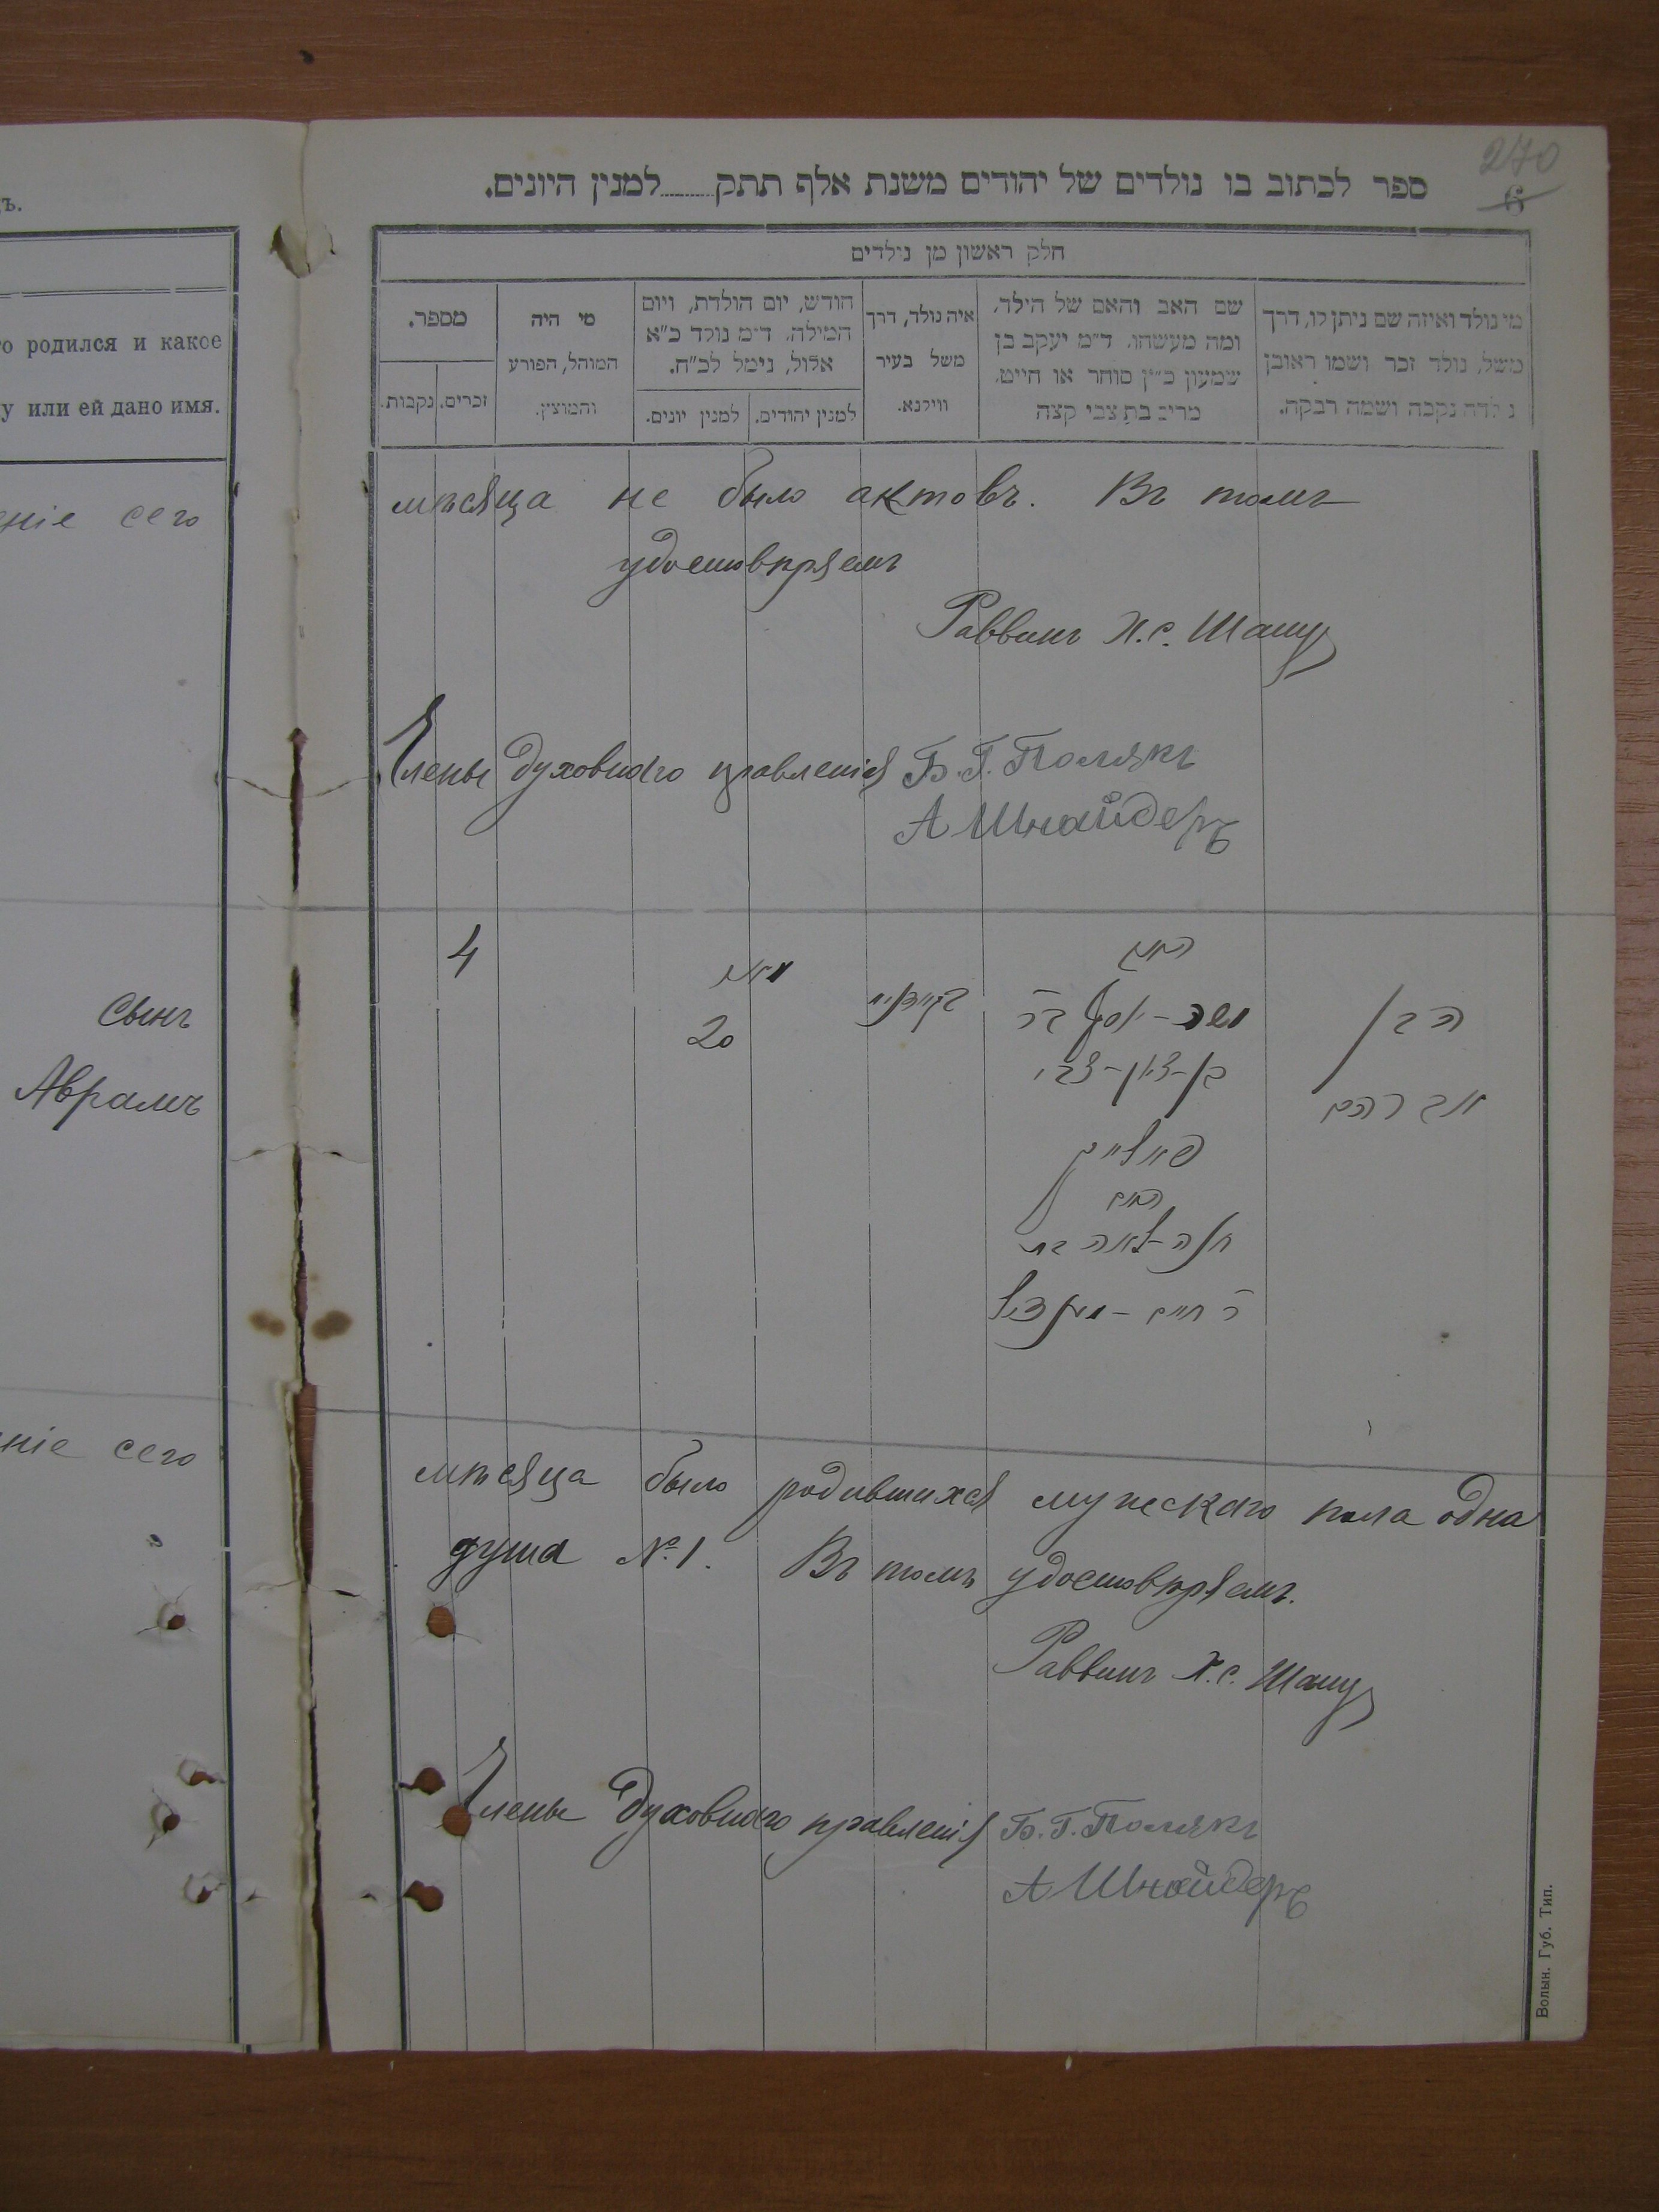 ъ.
о родился и какое
у или ей дано имя.
ніе сего
Сынъ
Аврамъ
ніе сего
270
6
ספר לכתוב בו נולדים של יהודים משנת אלף תתק למנין היונים.
חלק ראשון מן נולדים
מי נולד ואיזה שם ניתן לו, דרך
משל, נולד זכר ושמו ראובן
נולדה נקבה ושמה רבקה.
שם האב והאם של הילד,
ומה מעשהו. ד״מ יעקב בן
שמעון כ״ץ סוחר או חייט,
מרים בת צבי קצה
איה נולד, דרך
משל בעיר
ווילנא.
חודש, יום הולדת, ויום
המילה. ד״מ נולד כ״א
אלול, נימל לכ״ח.
למנין יהודים.
למנין יונים.
מי היה
המוהל, הפורע
והמוצץ.
מספר.
זכרים.
נקבות.
мѣсяца не было актовъ. Въ томъ
удостовѣряемъ
Раввинъ Х.С.
Члены духовнаго правленія Б.Г. Полякъ
А Шнайдеръ
4
20
האב
משה-יוסף בר
בן-ציון-צבי
האם
חנה-לאה בת
הבן
אברהם
мѣсяца было родившихся мужскаго пола одна
душа №1. Въ томъ удостовѣряемъ.
Раввинъ Х.С.
Члены духовнаго правленія Б.Г. Полякъ
А Шнайдеръ
Волын. Губ. Тип.